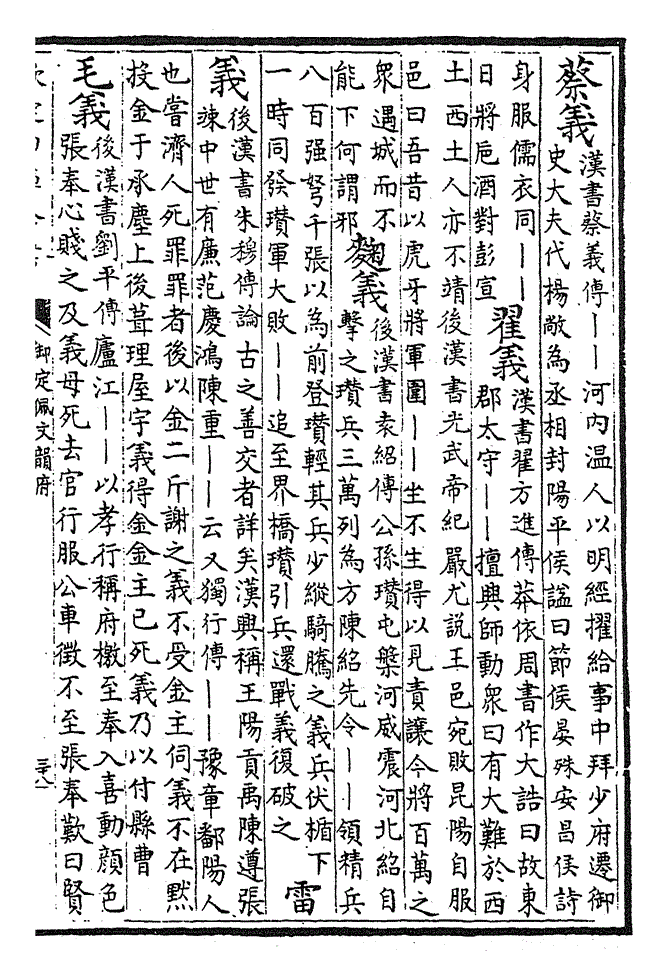 蔡義
漢書蔡義傳——河内温人以明經擢給事中拜少府遷御
史大夫代楊敞為丞相封陽平侯諡曰節侯晏殊安昌侯詩
身服儒衣同——
日將巵酒對彭宣
翟義
漢書翟方進傳莽依周書作大誥曰故東
郡太守——擅興師動衆曰有大難於西
土西土人亦不靖後漢書光武帝紀 嚴尤說王邑宛敗昆陽自服
邑曰吾昔以虎牙將軍圍——坐不生得以見責讓今將百萬之
衆遇城而不
能下何謂邪
麴義
後漢書袁紹傳公孫瓚屯槃河威震河北紹自
擊之瓚兵三萬列為方陳紹先令——領精兵
八百强弩千張以為前登瓚輕其兵少縱騎騰之義兵伏楯下
一時同發瓚軍大敗——追至界橋瓚引兵還戰義復破之
雷
義
後漢書朱穆傳論 古之善交者詳矣漢興稱王陽貢禹陳遵張
竦中世有廉范慶鴻陳重——云又獨行傳——豫章鄱陽人
也嘗濟人死罪罪者後以金二斤謝之義不受金主伺義不在黙
投金于承塵上後葺理屋宇義得金金主已死義乃以付縣曹
毛義
後漢書劉平傳廬江——以孝行稱府檄至奉入喜動顔色
張奉心賤之及義母死去官行服公車徵不至張奉歎曰賢
御定佩文韻府